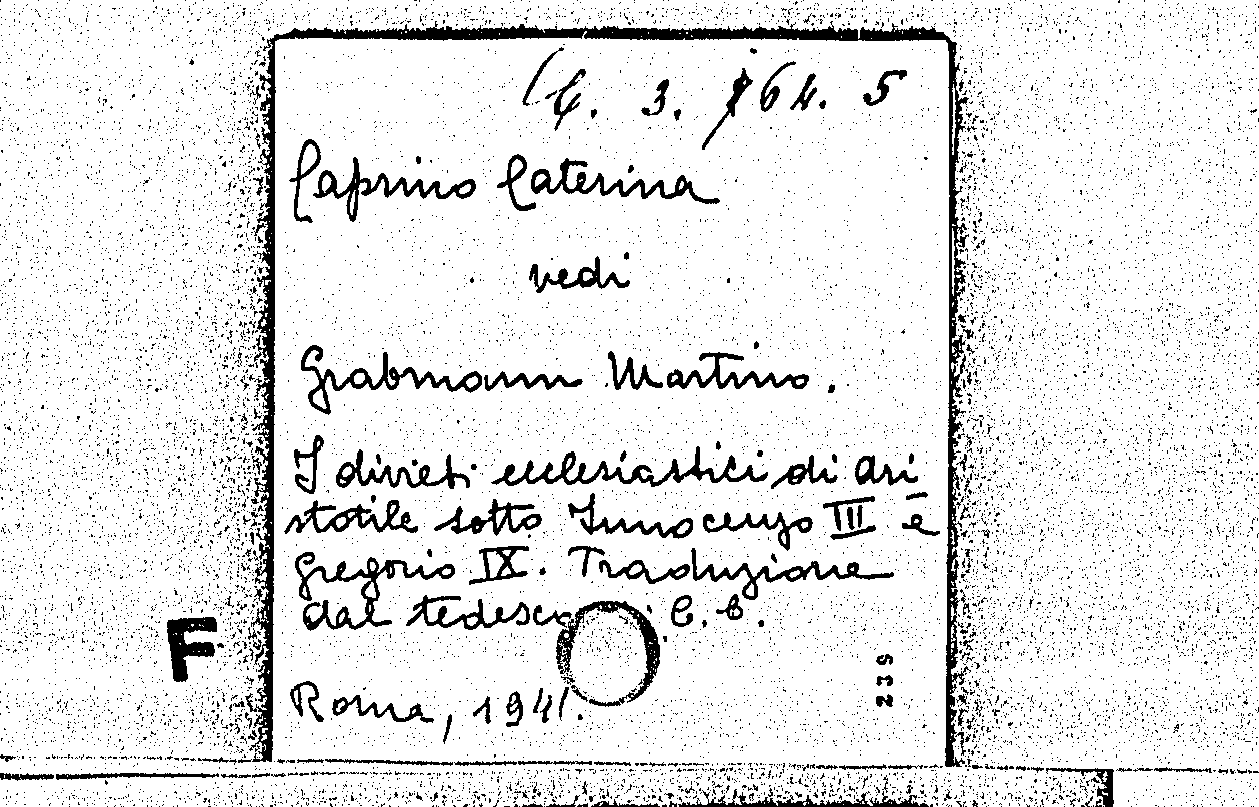 C. 3. 764. 5
Caprino Caterina
vedi
Grabmann Martino.
I divieti ecclesiastici di Ari
stotile sotto Innocenzo III e
Gregorio IX. Traduzione
dal tedesco C. C.
Roma, 1941.
F
235